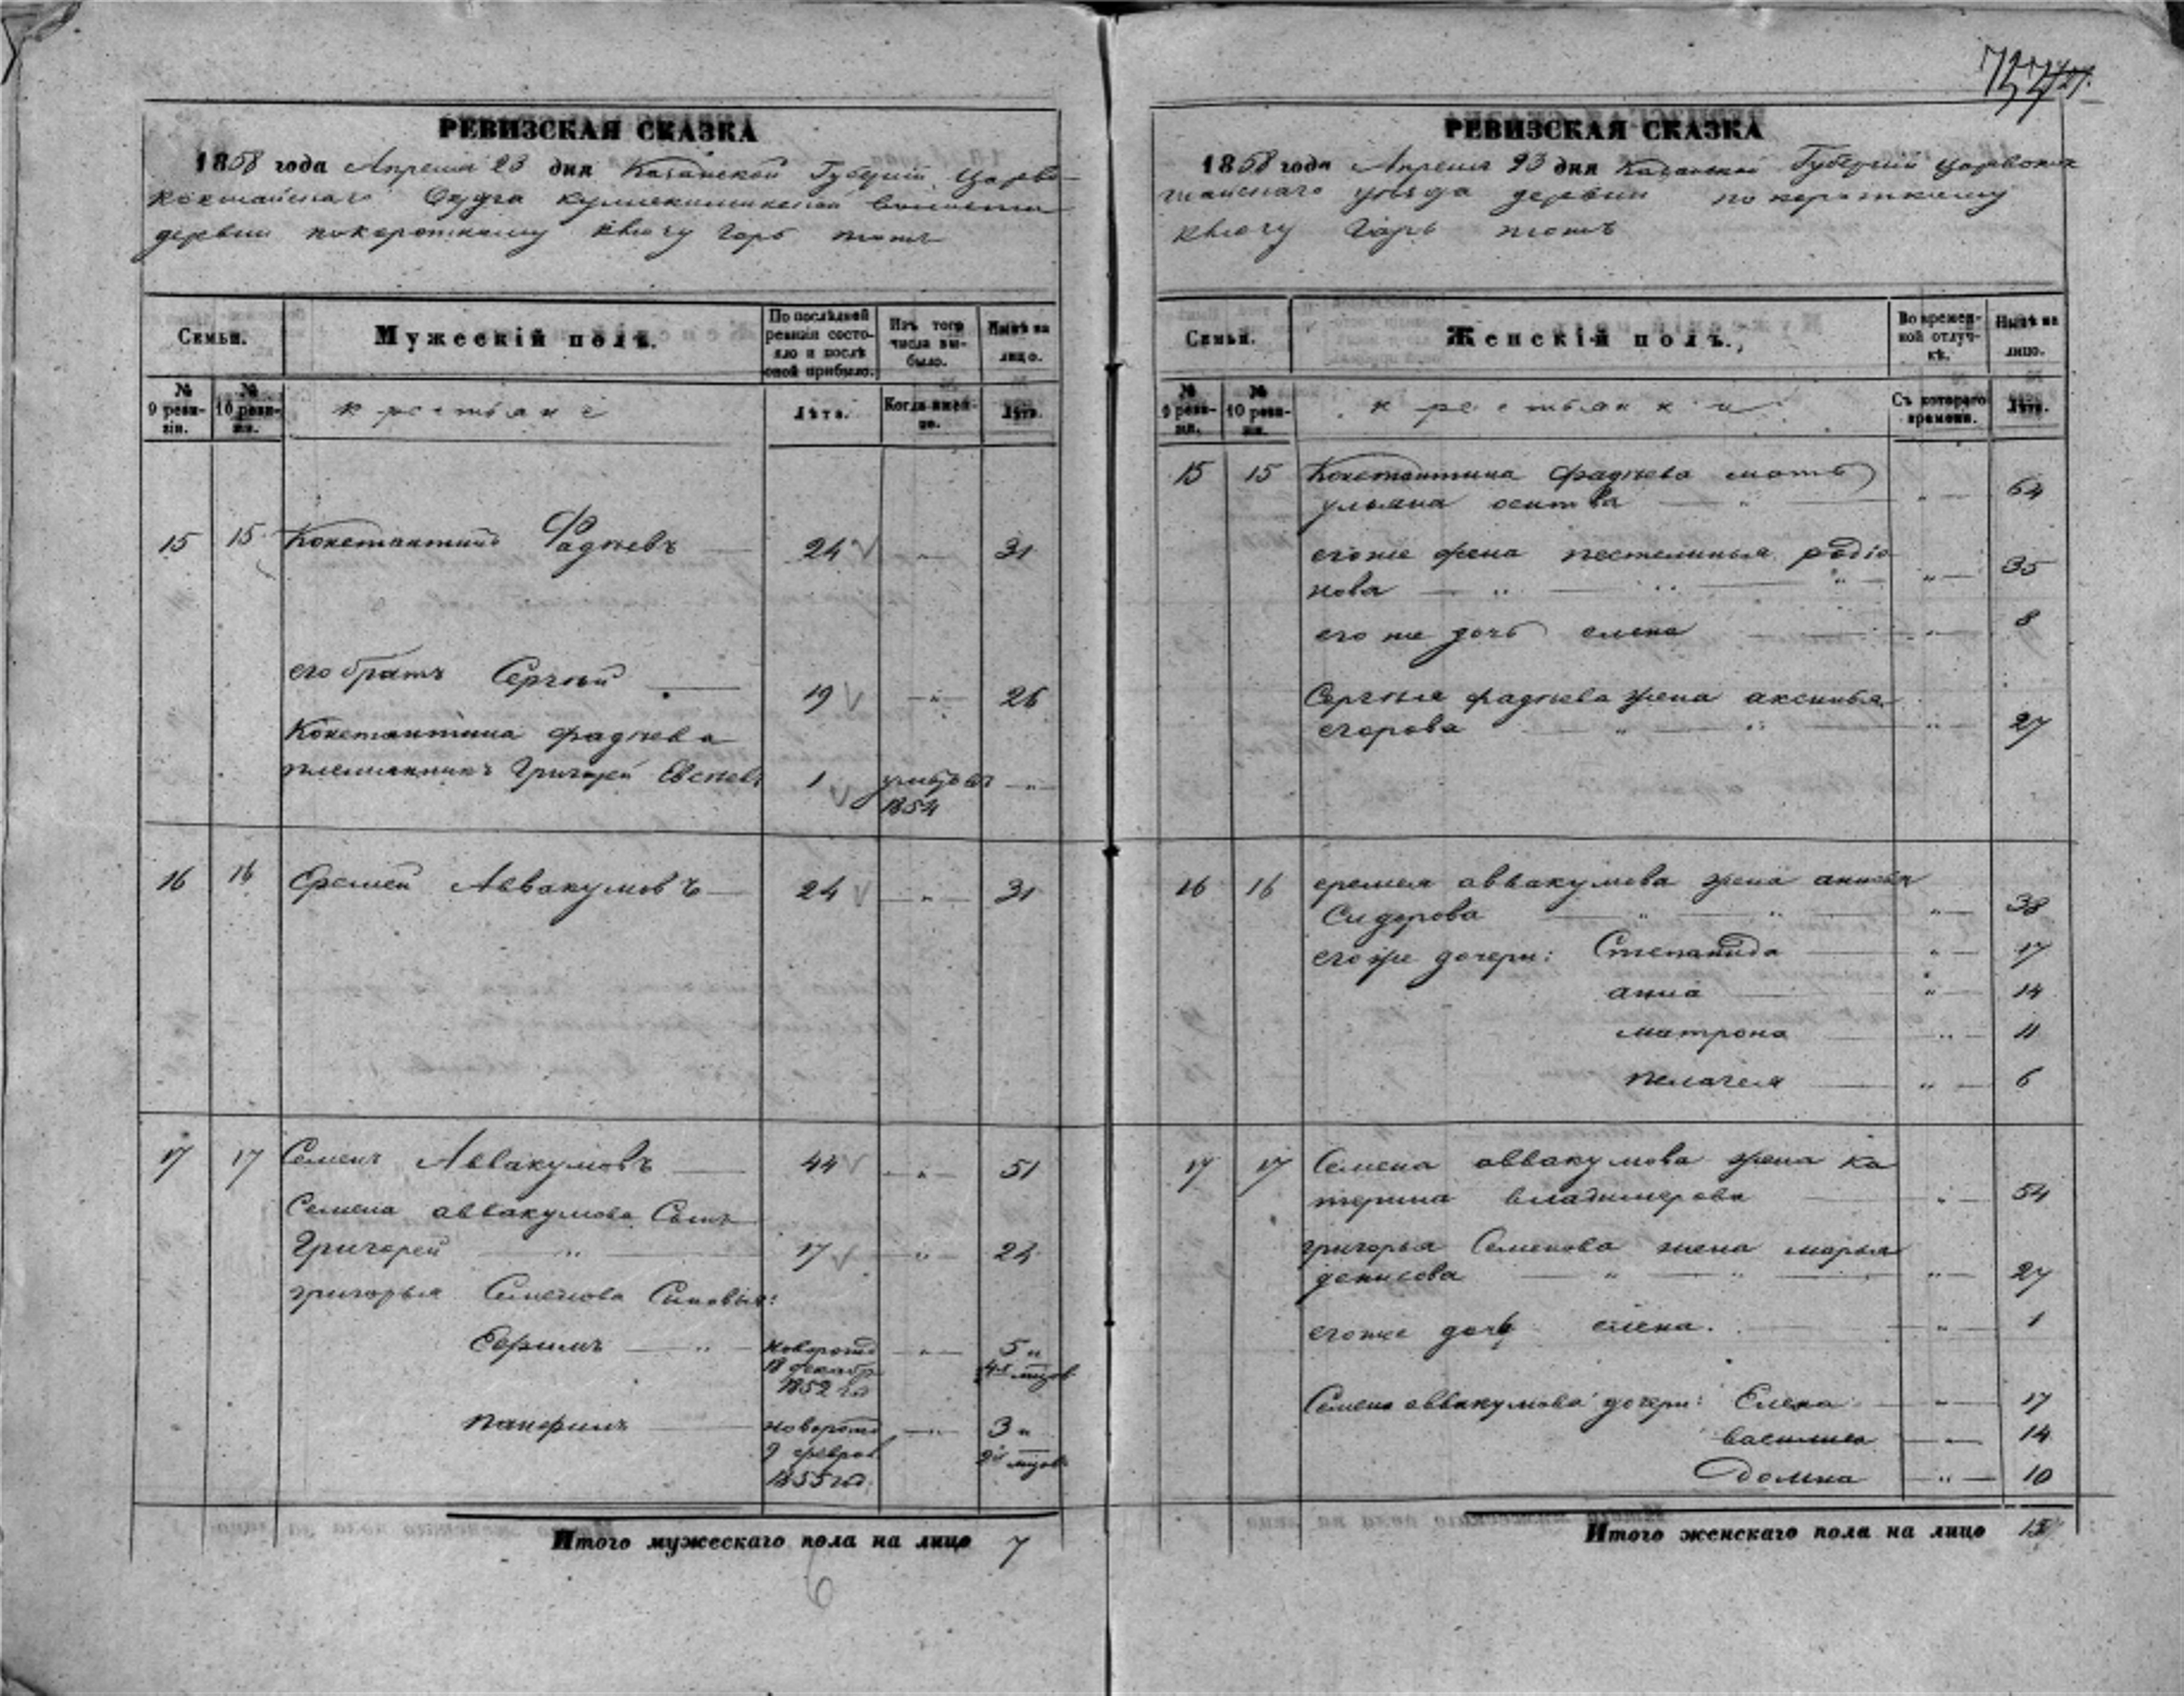 РЕВИЗСКАЯ СКАЗКА
1858 года Апреля 23 дня Казанской Губернiи Царево
кокшайскаго Округа волости
деревни покороткому ключу Гарь тожъ
Семьи.
Мужескiй полъ.
По послѣдней ревизiи состояло и послѣ оной прибыло.
Изъ того числа выбыло.
Нынѣ на лицо.
№ 9 ревизiи.
№ 10 ревизiи.
крестьяне
Лѣта.
Когда именно.
Лѣта.
15 15 Константинъ Фадѣевъ 24 " 31
его братъ Сергѣй 19 " 26
Константина фадѣева
племянникъ Григорей Евсѣевъ 1 умеръ въ "
1854
16 16 Еремей Аввакумовъ 24 " 31
17 17 Семенъ Аввакумовъ 44 " 51
Семена аввакумова Сынъ
Григорей " 17 " 24
григорья Семенова Сыновья:
Ефимъ " новорожд " 5 и
18 декабр 4х мѣцов
1852 год
панфилъ новорожд " 3 и
9 феврал 2х мѣцов
1855 год.
Итого мужескаго пола на лицо 7
6
727
РЕВИЗСКАЯ СКАЗКА
1858 года Апреля 23 дня Казанской Губернiи Царевокок
шайскаго уѣзда деревни покороткому
ключу Гарь тожъ
Семьи.
Женскiй полъ.
Во временной отлучкѣ.
Нынѣ на лицо.
№ 9 ревизiи.
№ 10 ревизiи.
крестьянки
Съ котораго времени.
Лѣта.
15 15 Константина фадѣева мать
ульяна осипова " " 64
егоже жена пестелинья родiо
нова " " " " 35
его же дочь елена " 8
Сергѣя фадѣева жена аксинья
егорова " " " 27
16 16 еремея аввакумова жена анисья
Сидорова " " " 38
егоже дочери: Степанида " 17
анна " 14
матрона " 11
пелагея " 6
17 17 Семена аввакумова жена ка
терина владимерова " 54
григорья Семенова жена марья
денисова " " " 27
егоже дочь елена. " 1
Семена аввакумова дочери: Елена " 17
василиса " 14
Домна " 10
Итого женскаго пола на лицо 15